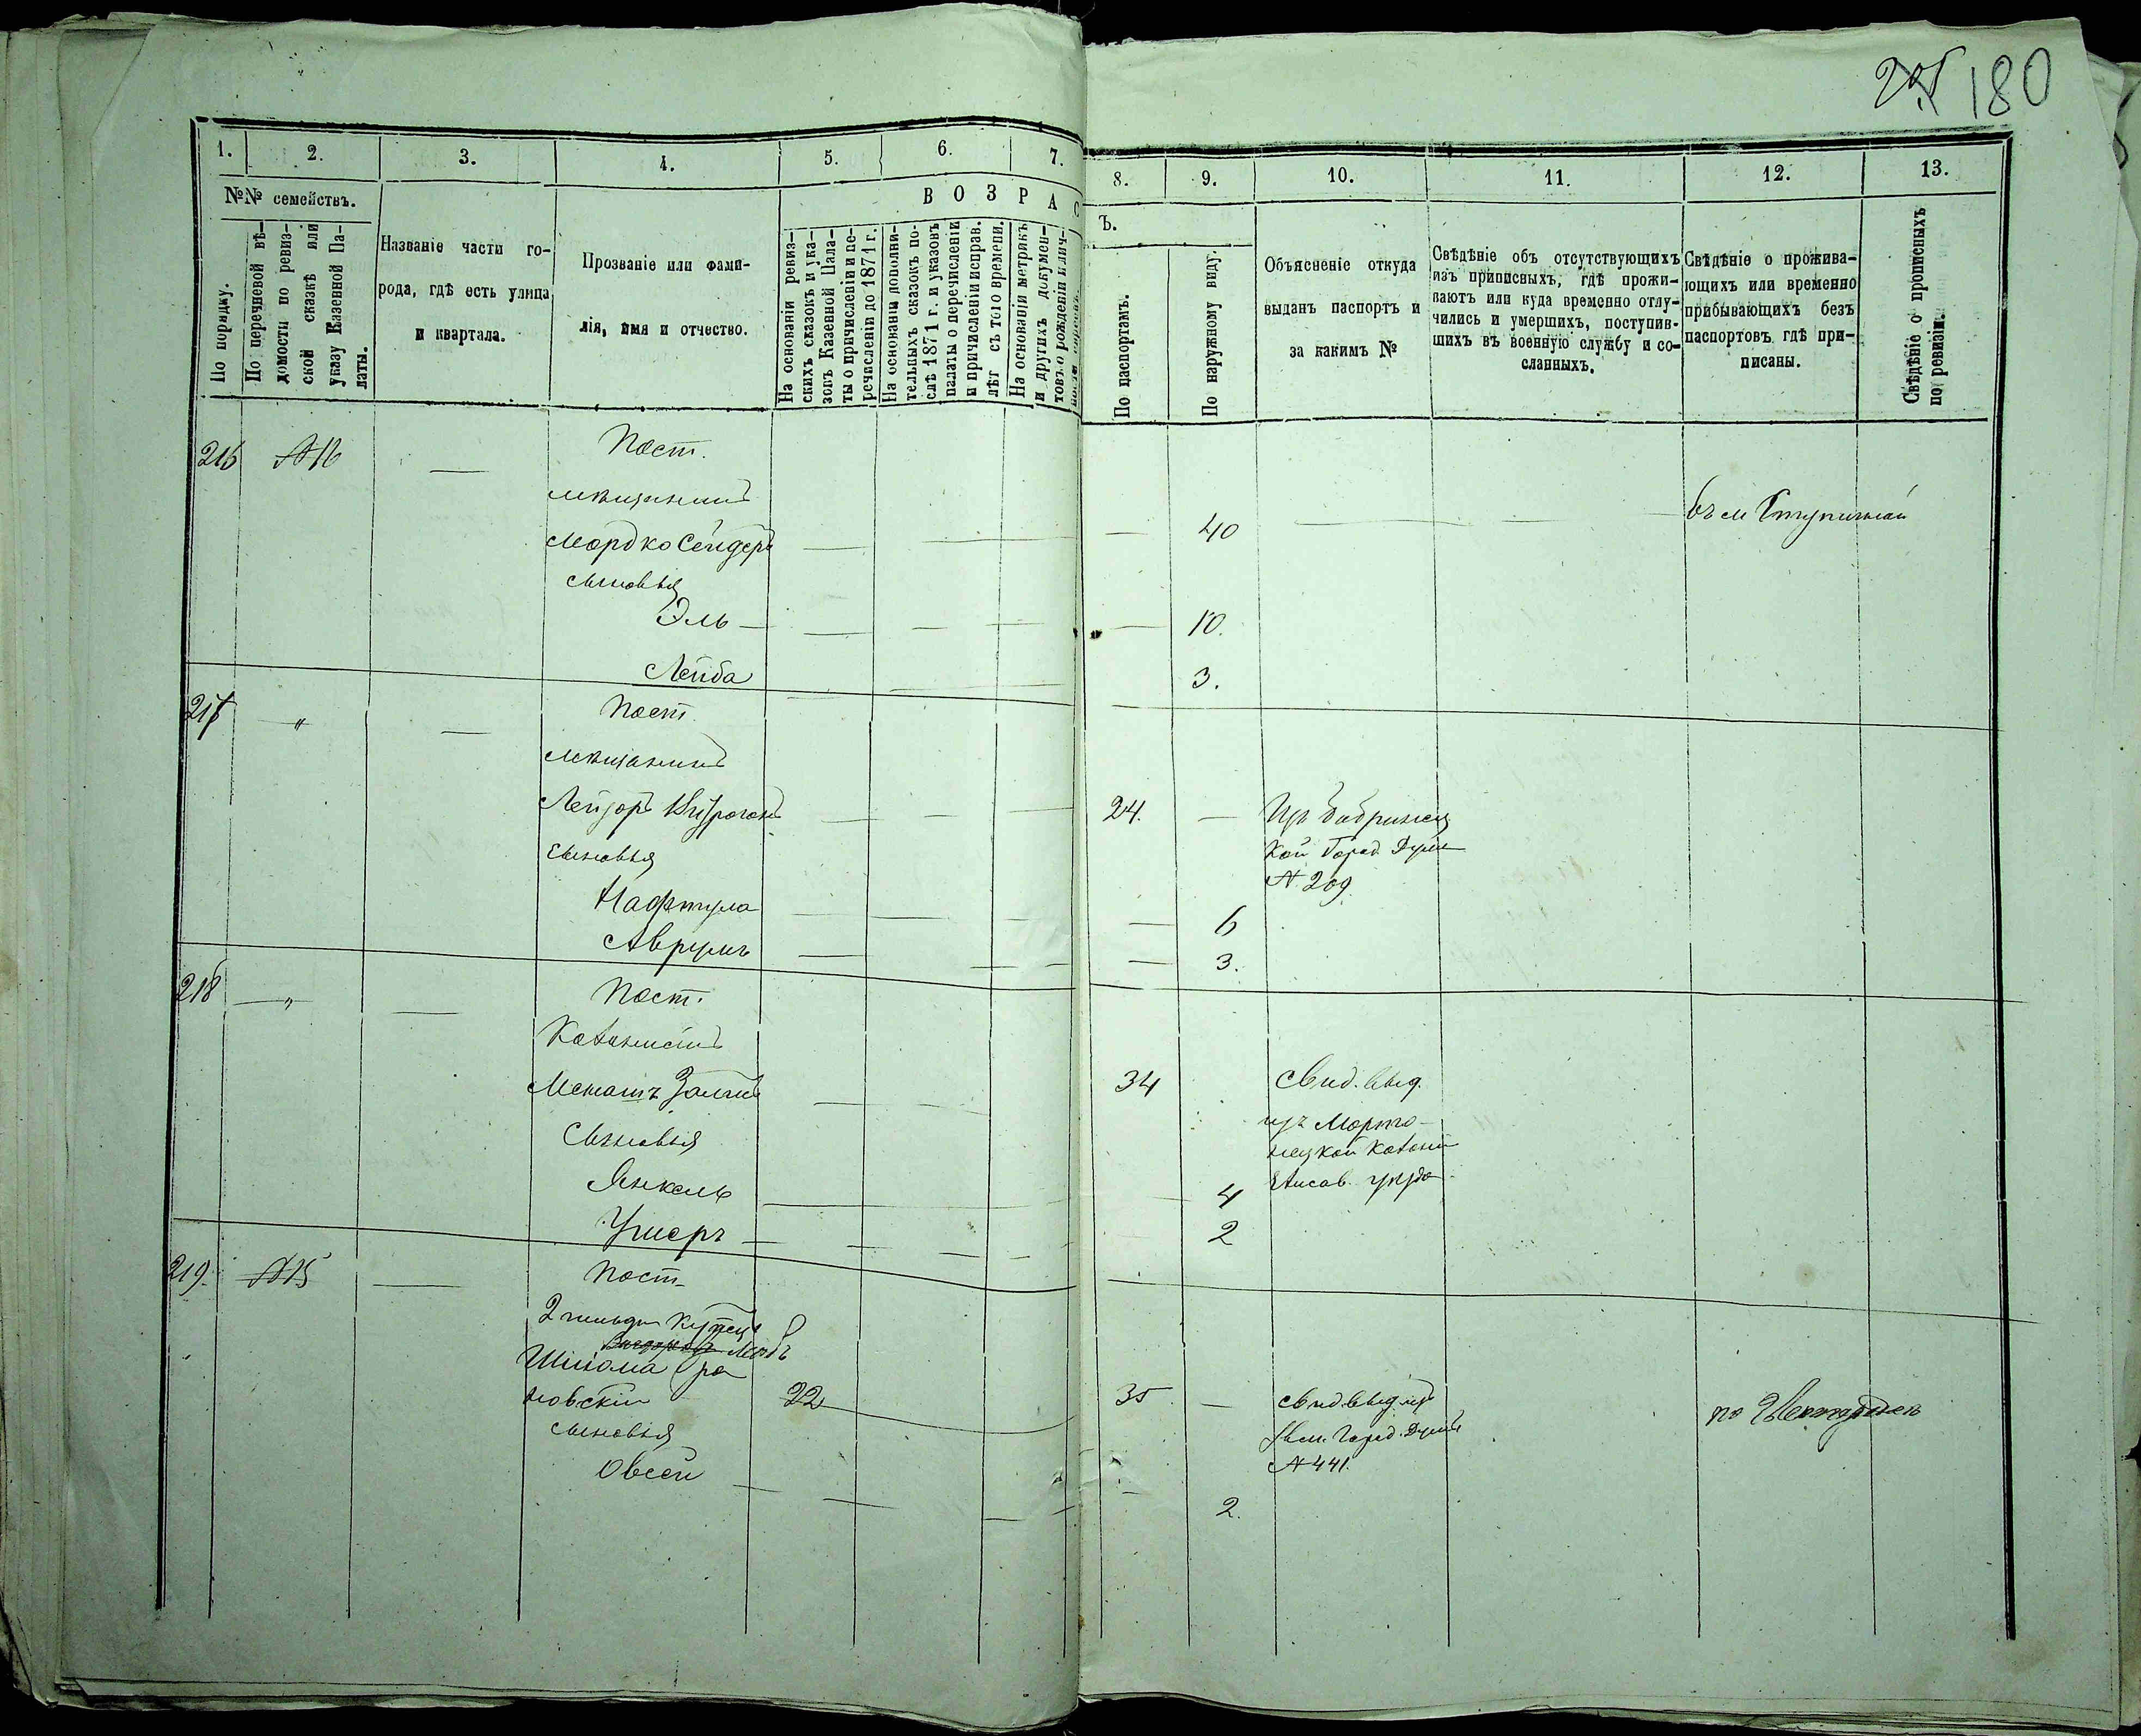 180
1.
2.
3.
4.
5.
6.
7.
8.
9.
10.
11.
12.
13.
№№ семействъ.
По порядку.
По перечневой вѣ-
домости по ревиз-
ской сказкѣ или
указу Казенной Па-
латы.
Названіе части го-
рода, гдѣ есть улица
и квартала.
Прозваніе или фами-
лія, имя и отчество.
ВОЗРАС
Ъ.
На основаніи ревиз-
скихъ сказокъ и ука-
зовъ Казенной Пала-
ты о причисленіи и пе-
речисленіи до 1871 г.
На основаніи дополни-
тельныхъ сказокъ по-
слѣ 1871 г. и указовъ
палаты о перечисленіи
и причисленіи исправ.
лѣт съ того времени.
На основаніи метрикъ
и другихъ докумен-
товъ о рожденіи и лич-
По паспортамъ.
По наружному виду.
Объясненіе откуда
выданъ паспортъ и
за какимъ №
Свѣдѣніе объ отсутствующихъ
изъ приписныхъ, гдѣ прожи-
ваютъ или куда временно отлу-
чились и умершихъ, поступив-
шихъ въ военную службу и со-
сланныхъ.
Свѣдѣніе о прожива-
ющихъ или временно
прибывающихъ безъ
паспортовъ гдѣ при-
писаны.
Свѣдѣніе о прописныхъ
по ревизіи.
216 №16 — Пост.
мѣщанинъ
Мордко Сендеръ — 40
сыновья
Эль — 10.
Лейба 3.
217 „ — Пост.
мѣщанинъ
Лейзоръ 24. — Изъ Бобринец
кой Город. Думы
N 209.
сыновья
Нафтула — 6
Аврумъ — 3.
218 — „ — Пост.
Колонистъ
34 Свид. выд.
изъ
Колоніи
Елисав. уѣзда
Сыновья
Янкель 4
Ушеръ — 2
219. №15 — Пост.
2 гильдіи купецъ
новскій 22 35 — свид. выд. изъ
Город. Думы
N 441.
сыновья
Овсей — 2.